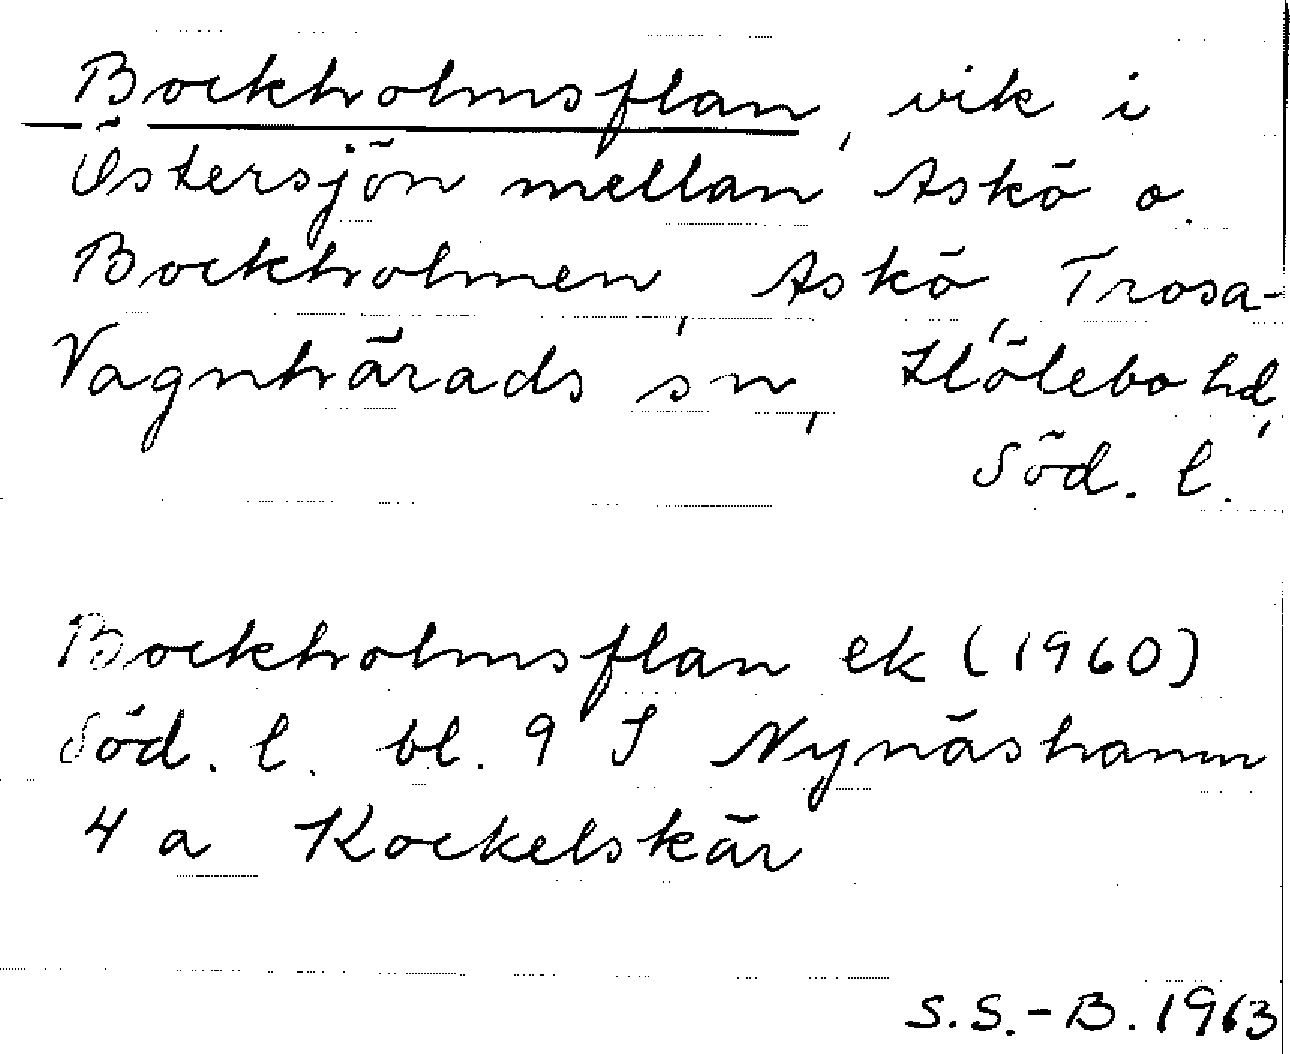 Bockholmsflan, vik i
Östersjön mellan Askö o.
Bockholmen, Askö, Trosa-
Vagnhärads sn, Hölebo hd,
Söd. l.
Bockholmsflan ek (1960)
Söd. l. bl. 9 I Nynäshamn
4 a Kockelskär
S.S.-B. 1963